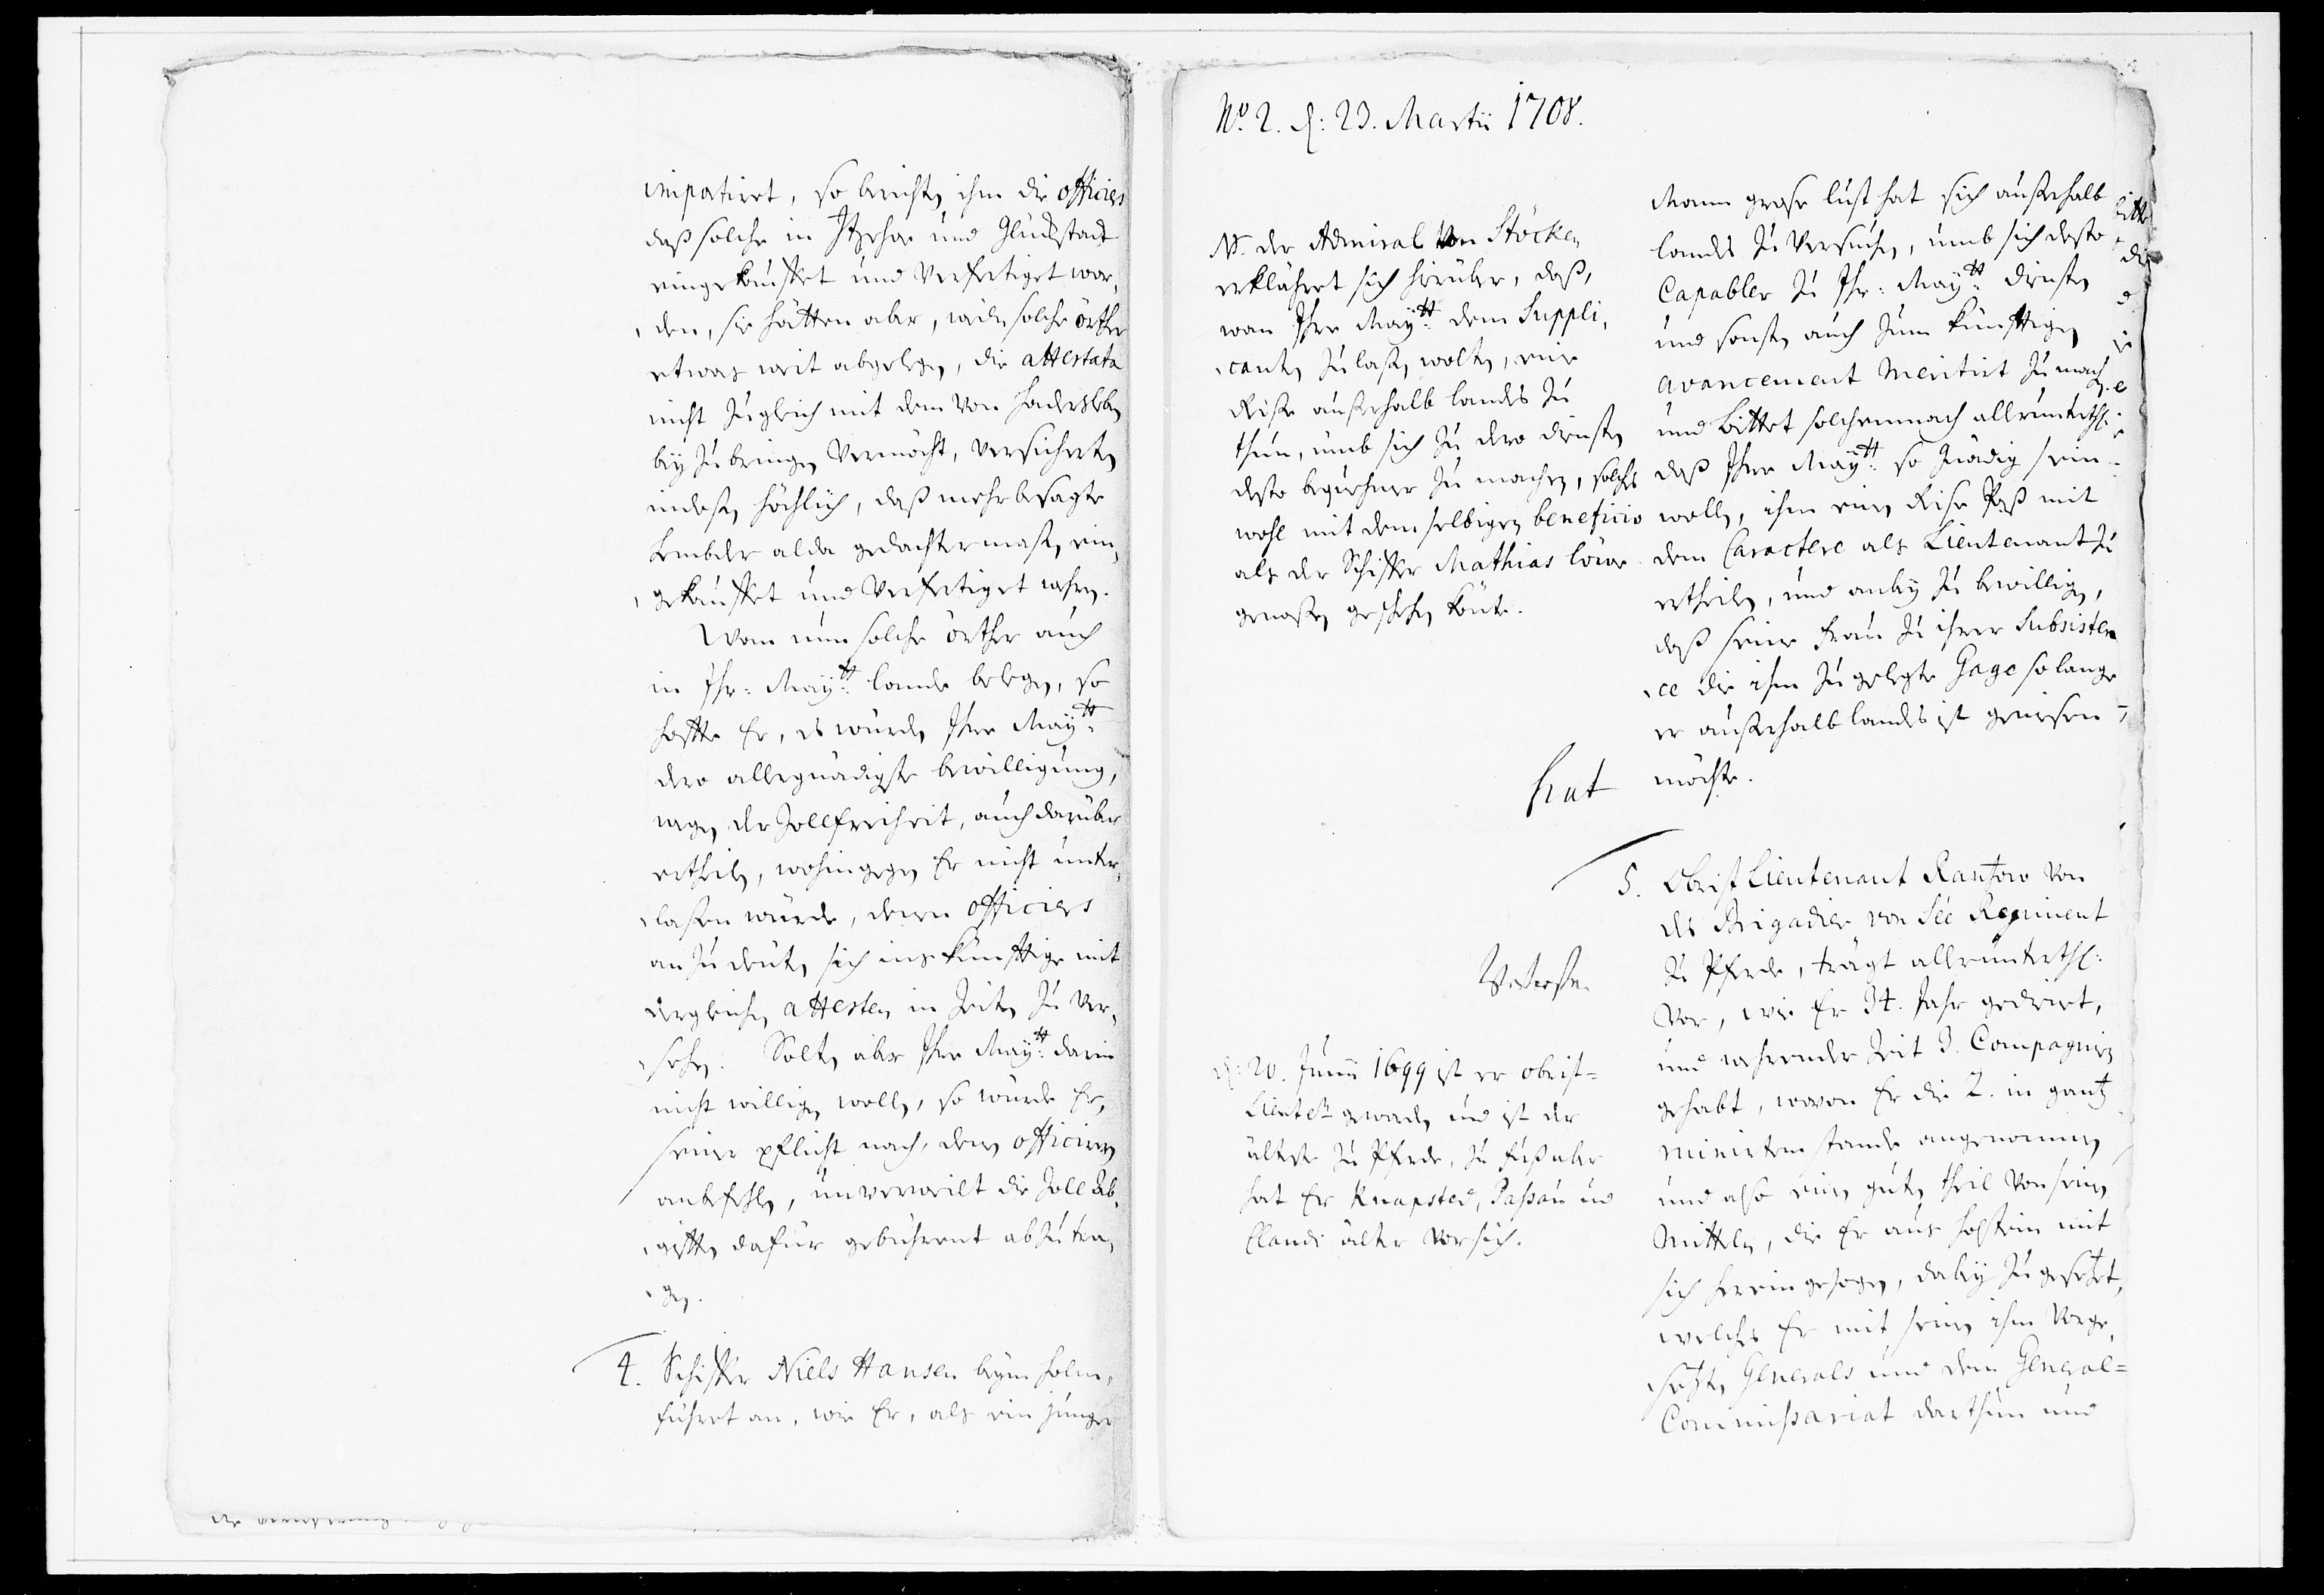 impatiret, so berichten ihm die officiers
daß solche in Itzehoe und Glückstadt
eingekauffet und verfertiget wor,
den, sie hätten aber, weile solche örther
etwas weit abgelegen, die attestata
nicht zugleich mit dem von Haderslebn
bey zu bringen vermöcht, versicherten
indeßen höchlich, daß mehrbesagte
alda gedachtermaßen ein,
gekauffet und verfertiget wehren.
Wan nun solche örther auch
in Ihr: Maytt: lande belegen, so
hoffte Er, es würden Ihre Maytt:
dero allergnädigste bewilligung,
wegen der Zollfreiheit, auch darüber
ertheilen, wohingegen Er nicht unter,
laßen würde, denen officiers
an zu deuten, sich ins künfftige mit
dergleichen attesten in Zeiten zu ver,
sehen. Solten aber Ihre Maytt: darin
nicht willigen wollen, so würde Er,
seiner pflicht nach, denen officirern
anbefehlen, unverweilt die Zoll Ab,
gifften dafür gebührent abzutra,
gen.
4. Schiffer Niels Hansen beym Holm,
führet an, wie Er, als ein junger
No. 2. d: 23. Martii 1708.
NB. der Admiral von Stöcken
erklähret sich hierüber, daß,
wan Ihre Maytt: dem Suppli,
canten zulaßen wolten, eine
Reise außerhalb landes zu
thun, umb sich zu dero diensten
desto bequehmer zu machen, solches
wohl mit demselbigen beneficio
als der Schiffer Mathias löwe
genoßen geschehen könte.
hat
Mann große lust hat sich außerhalb
landes zu versuchen, umb sich desto
Capabler zu Ihr: Maytt: diensten
und sonsten auch zum künfftigen
avancement meritirt zu machen
und bittet solchemnach allerunterthl:
daß Ihre Maytt: so gnädig sein
wollen, ihm einen Reise Paß mit
dem Caractere als Lieutenant zu
ertheilen, und anbey zu bewilligen,
daß seine Frau zu ihrer Subsisten
ce die ihm zugelegte Gage solange
er außerhalb landes ist genießen
möchte.
5. Obrist Lieutenant Rantzow von
des Brigadier von Sée Regiment
zu Pferde, trägt allerunterthl:
vor, wie Er 34. Jahr gedienet,
und wehrender Zeit 3. Compagnien
gehabt, wovon Er die 2. in gantz
ruinirtem stande angenommen
und also einen guten theil von seinen
Mitteln, die Er aus Holstein mit
sich hereingezogen, dabey zugesetzet,
welches Er mit seinen ihm vorge,
setzten Generals und dem General=
Commissariat darthun und
d: 20. Junii 1699 ist er obrist=
Lieutent geworden und ist der
älteste zu Pferde, zu fuß aber
hat Er Knapsted, Passau und
Elandi älter vor sich.